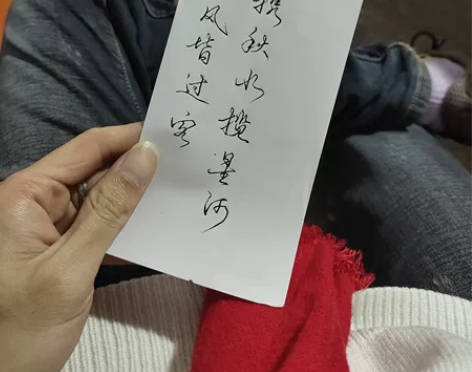 风皆过客
携秋水揽星河